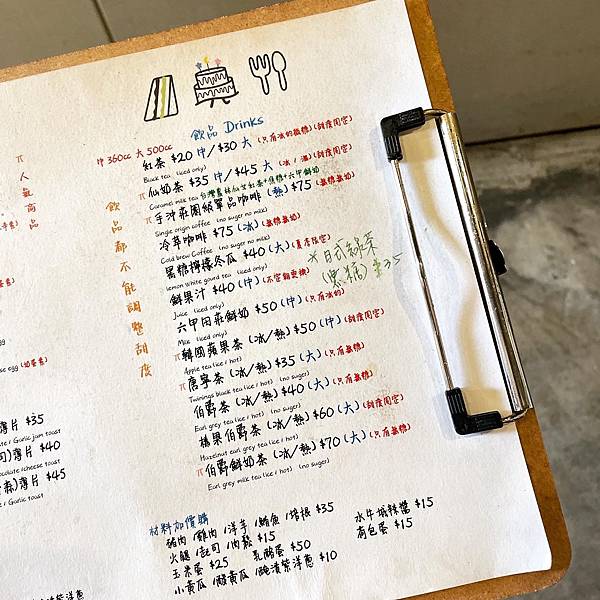 飲品 Drinks
中 360cc 大 500cc
紅茶 $20 中/$30 大 (只有冰的微糖)(甜度固定)
Black tea (iced only)
π 仙奶茶 $35 中/$45 大 (冰/溫)(甜度固定)
Caramel milk tea
π 手沖莊園級單品咖啡 (熱) $75 (無糖無奶)
Single origin coffee (no suger no milk)
冷萃咖啡 $75 (冰) (無糖無奶)
Cold brew Coffee (no suger no milk)
黑糖檸檬冬瓜 $40 (大)
lemon White gourd tea (iced only)
鮮果汁 $40 (中)
Juice (iced only)
六甲田莊鮮奶 $50 (中) (只有冰的)
Milk (iced only)
π 韓國蘋果茶 (冰/熱) $50 (中) (甜度固定)
Apple tea (ice / hot)
π 唐寧茶 (冰/熱) $35 (大) (只有無糖)
Twinings black tea (ice / hot) (no suger)
伯爵茶 (冰/熱) $40 (大) (只有無糖)
Earl grey tea (ice / hot) (no suger)
榛果伯爵茶 (冰/熱) $60 (大) (甜度固定)
Hazelnut earl grey tea (ice / hot)
π 伯爵鮮奶茶 (冰/熱) $70 (大) (只有無糖)
Earl grey milk tea (ice / hot) (no suger)
*日式綠茶
(無糖) $35
飲品都不能調整甜度
π人氣商品
薄片 $35
Garlic jam toast
司)薄片 $40
cheese toast
薄片 $45
Garlic toast
材料加價購
豬肉/雞肉/洋芋/鮪魚/培根 $35
火腿/起司/肉鬆 $15
玉米蛋 $25 乳酪蛋 $50
小黃瓜/酸黃瓜/醃漬紫洋蔥 $10
水牛城辣醬 $15
荷包蛋 $15
漬紫洋蔥